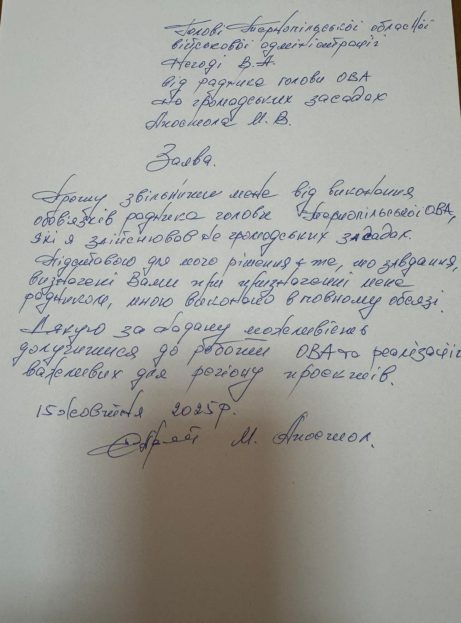 Голові Тернопільської обласної
військової адміністрації
Негоді В.А.
від радника голови ОВА
на громадських засадах
Апостола М. В.
Заява.
Прошу звільнити мене від виконання
обов'язків радника голови Тернопільської ОВА,
які я здійснював на громадських засадах.
Підставою для мого рішення є те, що завдання,
визначені Вами при призначенні мене
радником, мною виконано в повному обсязі.
Дякую за надану можливість
долучитися до роботи ОВА та реалізації
важливих для регіону проєктів.
15 жовтня 2025р.
М. Апостол.